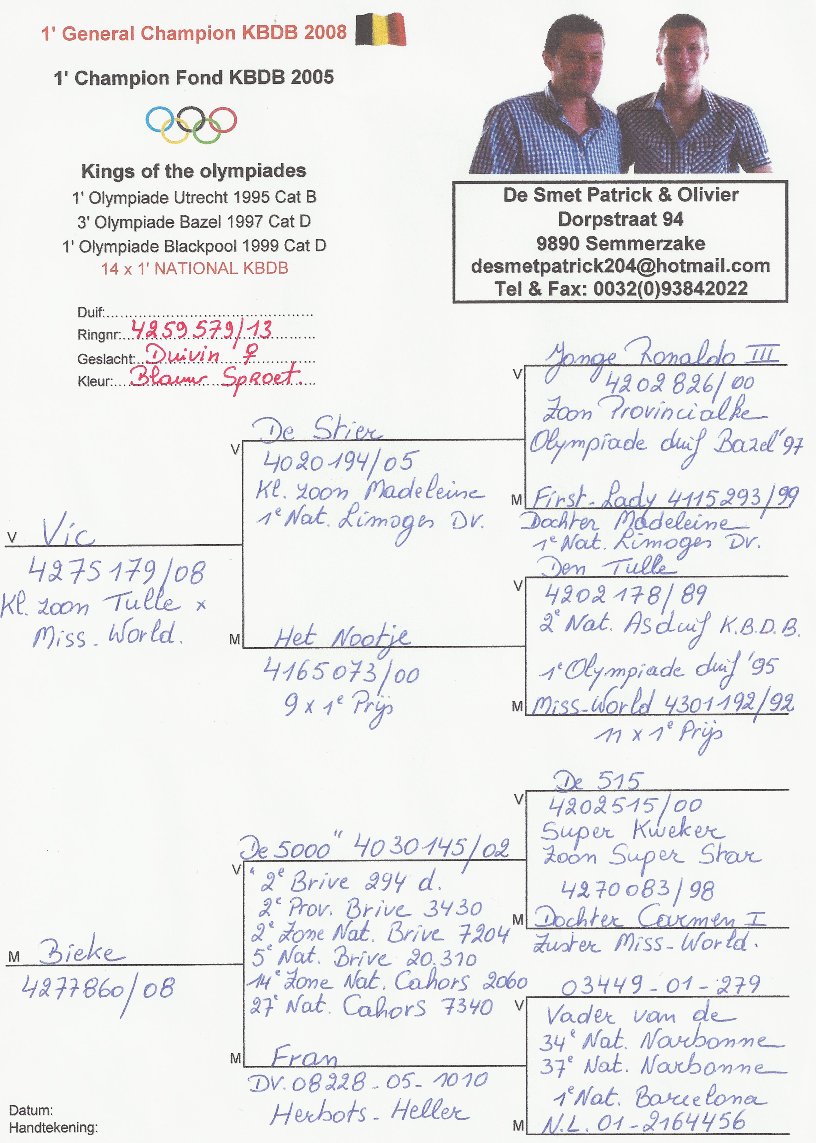 1' General Champion KBDB 2008
1' Champion Fond KBDB 2005
Kings of the olympiades
1' Olympiade Utrecht 1995 Cat B
3' Olympiade Bazel 1997 Cat D
1' Olympiade Blackpool 1999 Cat D
14 x 1' NATIONAL KBDB
De Smet Patrick & Olivier
Dorpstraat 94
9890 Semmerzake
desmetpatrick204@hotmail.com
Tel & Fax: 0032(0)93842022
Duif:
Ringnr: 4259579/13
Geslacht: Duivin ♀
Kleur: Blauw Sproet.
V Vic
4275179/08
Kl. zoon Tulle x
Miss-World.
V De Stier
4020194/05
Kl. zoon Madeleine
1e Nat. Limoges Dv.
M Het Nootje
4165073/00
9 x 1e Prijs
V Jonge Ronaldo III
4202826/00
Zoon Provincialke
Olympiade duif Bazel '97
M First-Lady 4115293/99
Dochter Madeleine
1e Nat. Limoges Dv.
V Den Tulle
4202178/89
2e Nat. Asduif K.B.D.B.
1e Olympiade duif '95
M Miss-World 4301192/92
11 x 1e Prijs
M Bieke
4277860/08
V De 5000" 4030145/02
" 2e Brive 294 d.
2e Prov. Brive 3430
2e Zone Nat. Brive 7204
5e Nat. Brive 20.310
14e Zone Nat. Cahors 2060
27e Nat. Cahors 7340
M Fran
DV. 08228-05-1010
Herbots-Heller
V De 515
4202515/00
Super Kweker
Zoon Super Star
4270083/98
M Dochter Carmen I
Zuster Miss-World.
03449-01-279
V Vader van de
34e Nat. Narbonne
37e Nat. Narbonne
1e Nat. Barcelona
M N.L. 01-2164456
Datum:
Handtekening: